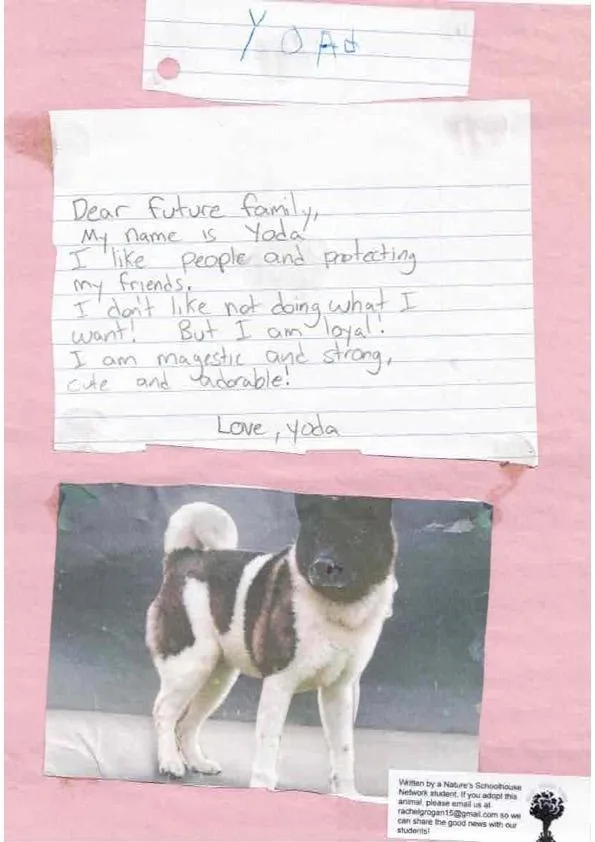 YOAd
Dear future family,
My name is Yoda
I like people and protecting
my friends.
I don't like not doing what I
want! But I am loyal!
I am magestic and strong,
cute and adorable!
Love, yoda
Written by a Nature's Schoolhouse
Network student. If you adopt this
animal, please email us at
rachelgrogan15@gmail.com so we
can share the good news with our
students!